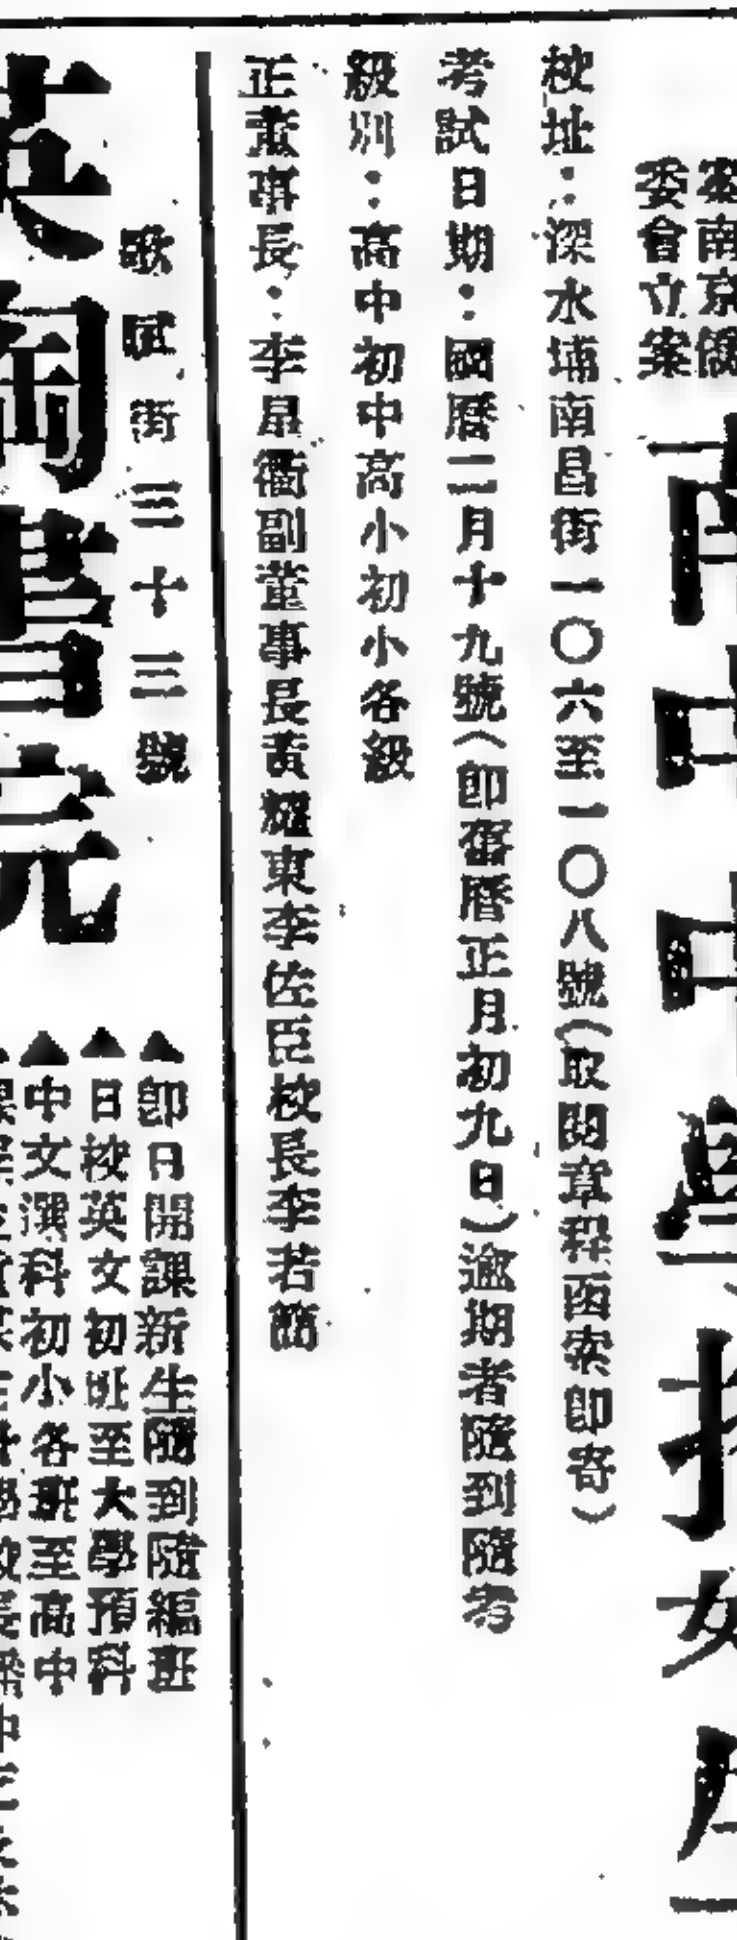 南京僑
委會立案
南中中學招女生
校址：深水埔南昌街一〇六至一〇八號（取閱章程函索即寄）
考試日期：國曆二月十九號（即舊曆正月初九日）逾期者隨到隨考
級別：高中初中高小初小各級
正董事長：李星衢副董事長黃耀東李佐臣校長李若簡
歌賦街三十三號
英陶書院
▲即日開課新生隨到隨編班
▲日校英文初班至大學預科
▲中文選科初小各班至高中